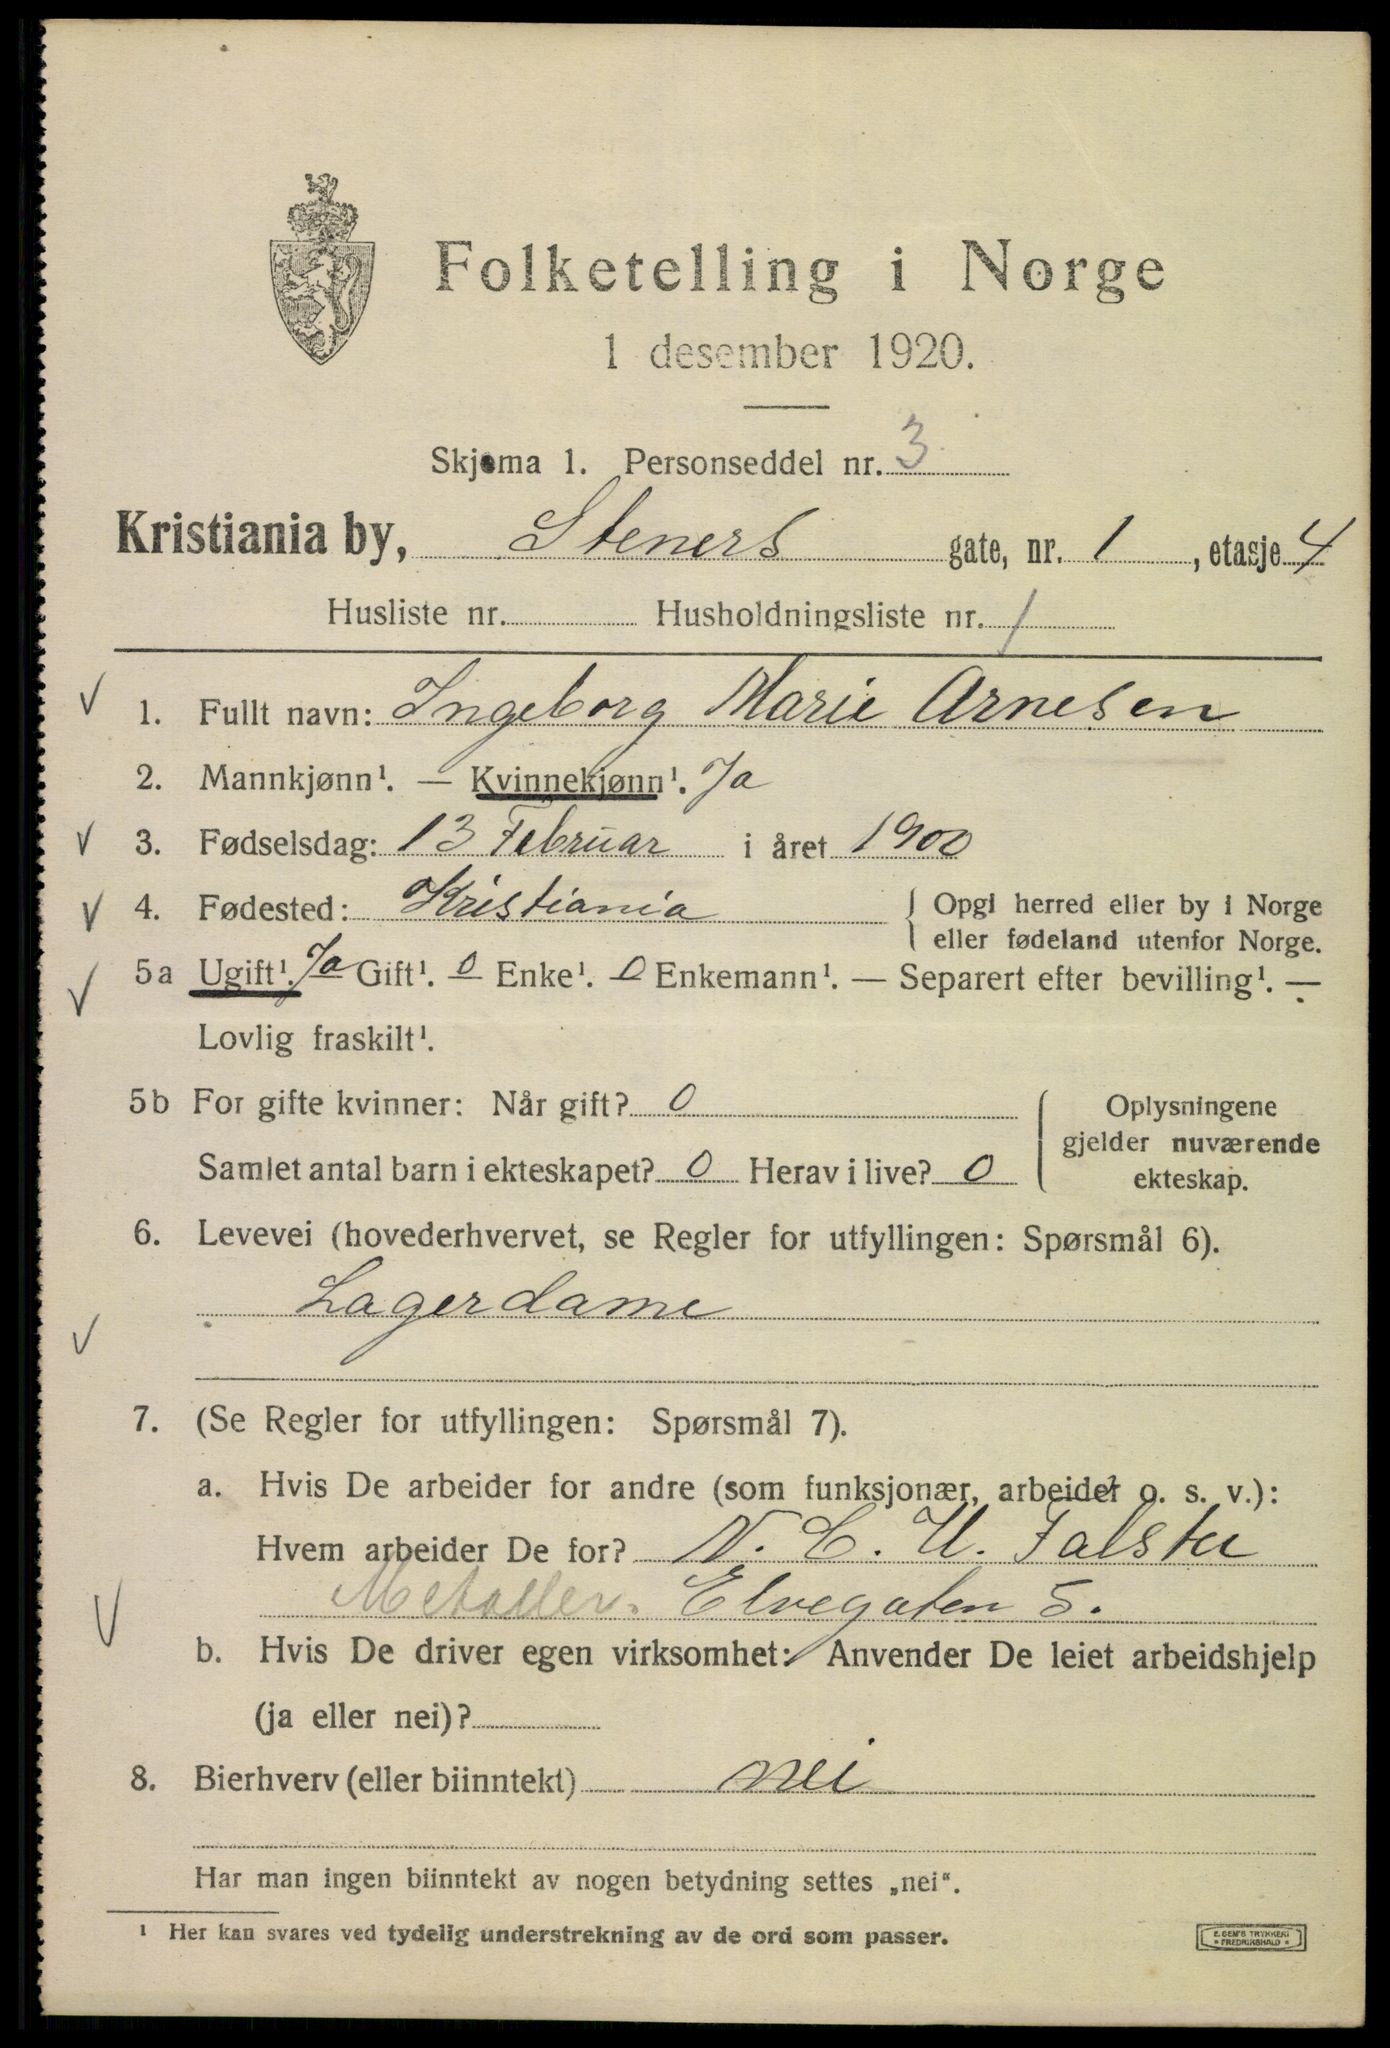 Folketelling i Norge
1 desember 1920.
Skjema 1. Personseddel nr. 3
Kristiania by, Steners gate, nr. 1, etasje 4
Husliste nr. Husholdningsliste nr. 1
1. Fullt navn: Ingeborg Marie Arnesen
2. Mannkjønn¹. — Kvinnekjønn¹. Ja
3. Fødselsdag: 13 Februar i året 1900
4. Fødested: Kristiania { Opgi herred eller by i Norge
eller fødeland utenfor Norge.
5a Ugift¹. Ja Gift¹. 0 Enke¹. 0 Enkemann¹. — Separert efter bevilling¹. —
Lovlig fraskilt¹.
5b For gifte kvinner: Når gift? 0 { Oplysningene
gjelder nuværende
Samlet antal barn i ekteskapet? 0 Herav i live? 0 ekteskap.
6. Levevei (hovederhvervet, se Regler for utfyllingen: Spørsmål 6).
Lagerdame
7. (Se Regler for utfyllingen: Spørsmål 7).
a. Hvis De arbeider for andre (som funksjonær, arbeider o. s. v.):
Hvem arbeider De for? N. C. U. Falster
Metaller. Elvegaten 5.
b. Hvis De driver egen virksomhet: Anvender De leiet arbeidshjelp
(ja eller nei)?
8. Bierhverv (eller biinntekt) nei
Har man ingen biinntekt av nogen betydning settes „nei“.
¹ Her kan svares ved tydelig understrekning av de ord som passer.
E. SEM'S TRYKKERI
* FREDRIKSHALD *